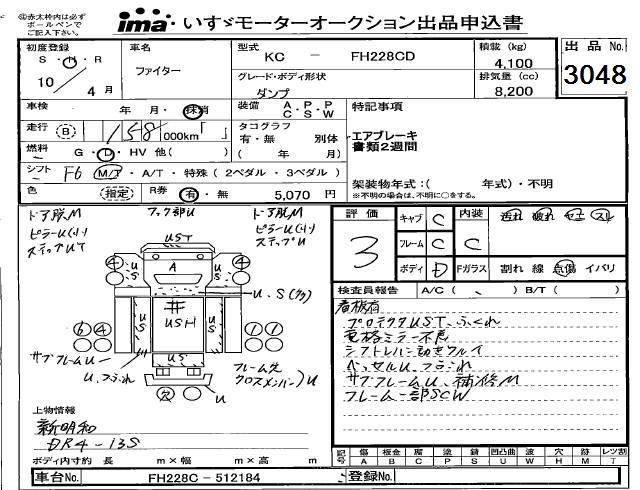 ◎赤太枠内は必ず
ボールペンで
ご記入下さい。
ima いすゞモーターオークション出品申込書
初度登録
S・H・R
10年 4月
車名
ファイター
型式
KC － FH228CD
グレード・ボディ形状
ダンプ
積載 (kg)
4,100
排気量 (cc)
8,200
出品 No.
3048
車検 年 月・抹消
装備 A.P.P
C.S.W
特記事項
エアブレーキ
書類2週間
走行 B 158,000km
タコグラフ
有・無 別体
( 年 月)
燃料 G・D・HV 他( )
シフト F6 M/T・A/T・特殊(2ペダル・3ペダル)
架装物年式:( 年式)・不明
※不明の場合は、不明に○をする。
色 (指定) R券 有・無 5,070 円
ドア脱M
ピラーU(小)
ステップUT
フック部U
ドア脱M
ピラーU(小)
ステップU
評価
3
キャブ C 内装
フレーム C C
ボディ D Fガラス 割れ 線 点傷 イバリ
検査員報告 A/C( ) B/T( )
看板有
プロテクタUST、ふくれ
電格ミラー不良
シフトレバー動きワルイ
ベッセルU、フラふれ
サブフレームU、補修M
フレーム一部SCW
UST
A
4
4
U
S
U
S
U、S
井
USH
U
S
U
S
6 4
1 1
US
サブフレームU
U
フレーム欠
クロスメンバーU
欠
U
上物情報
新明和
DR4-13S
ボディ内寸約 長 m×幅 m×高 m
記号 傷 A 板金 B 腐 C 塗 P 錆 S 凹凸曲 U 波 W 穴 H 跡 M レツ割 T
車台No. FH228C－512184
登録No.